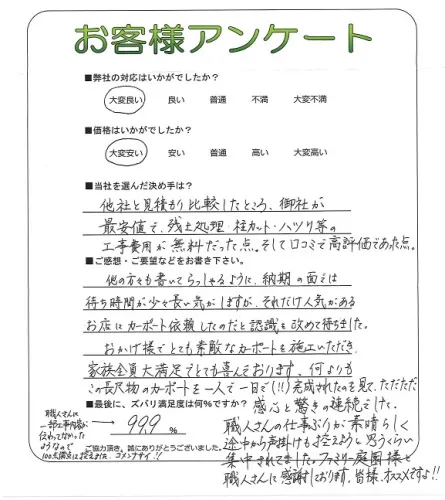 お客様アンケート
■弊社の対応はいかがでしたか?
大変良い 良い 普通 不満 大変不満
■価格はいかがでしたか?
大変安い 安い 普通 高い 大変高い
■当社を選んだ決め手は?
他社と見積もり比較したところ、御社が
最安値で、残土処理・柱カット・ハツリ等の
工事費用が無料だった点。そして口コミで高評価であった点。
■ご感想・ご要望などをお書き下さい。
他の方々も書いてらっしゃるように、納期の面では
待ち時間が少々長い気がしますが、それだけ人気がある
お店にカーポート依頼したのだと認識を改めて待ちました。
おかげ様でとても素敵なカーポートを施工いただき、
家族全員大満足でとても喜んでおります。何よりも
この長尺物のカーポートを一人で一日で(!!)完成されたのを見て、ただただ
感心と驚きの連続でした。
■最後に、ズバリ満足度は何%ですか?
99.9 %
職人さんの仕事ぶりが素晴らしく
途中から声掛けも控えようと思うくらい
集中されてました。ファミリー庭園様と
職人さんに感謝しております。皆様、オススメですよ!!
ご協力頂き、誠にありがとうございました。
職人さんに
一部工事内容が
伝わってなかった
ようなので
100点満点は控えました。ゴメンナサイ!!